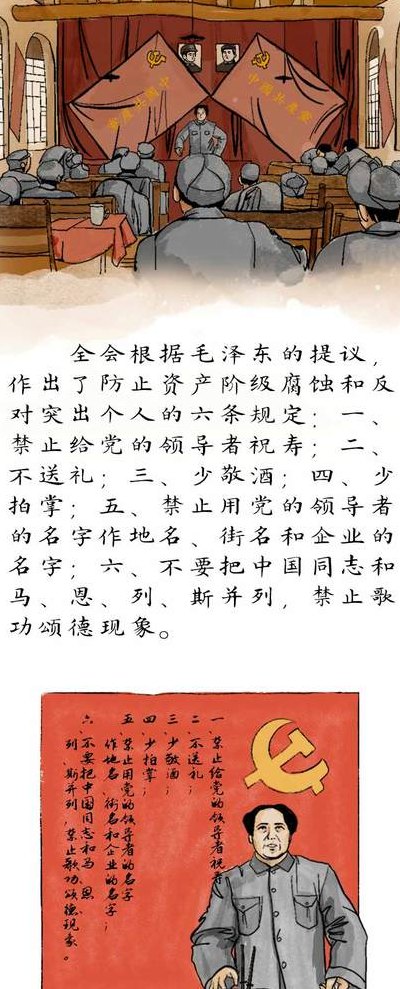 中国共产党
中国共产党
全会根据毛泽东的提议，
作出了防止资产阶级腐蚀和反
对突出个人的六条规定：一、
禁止给党的领导者祝寿；二、
不送礼；三、少敬酒；四、少
拍掌；五、禁止用党的领导者
的名字作地名、街名和企业的
名字；六、不要把中国同志和
马、恩、列、斯并列，禁止歌
功颂德现象。
一、禁止给党的领导者祝寿
二、不送礼；
三、少敬酒；
四、少拍掌；
五、禁止用党的领导者的名字
作地名、街名和企业的名字；
六、不要把中国同志和马、恩、
列、斯并列，禁止歌功颂德现象。